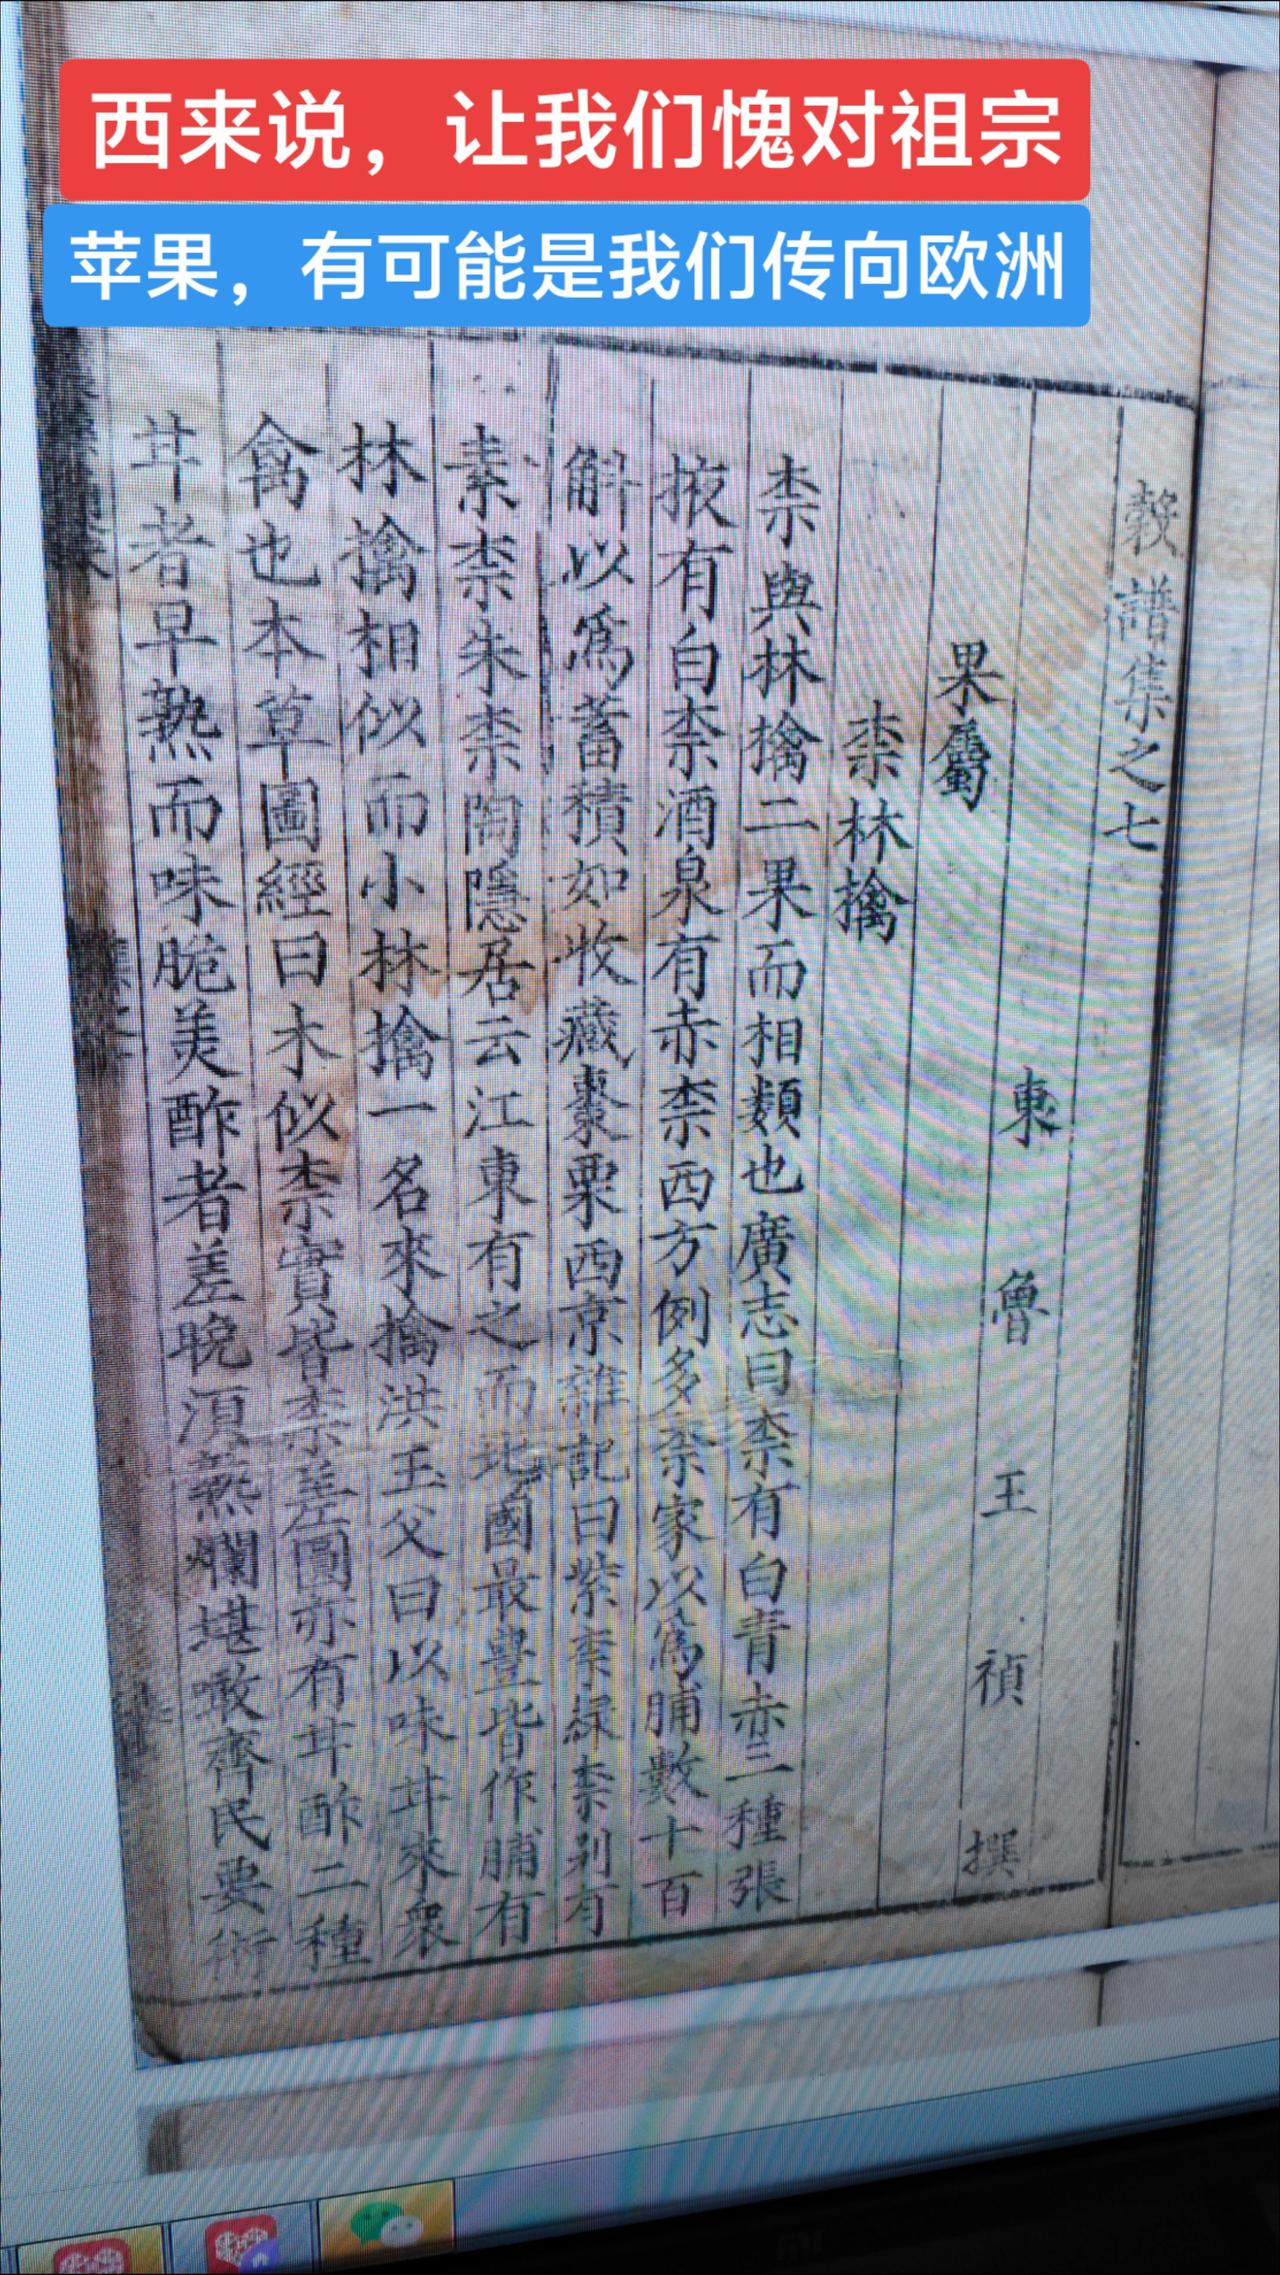 西来说，让我们愧对祖宗
苹果，有可能是我们传向欧洲
穀譜集之七
東魯王禎撰
果屬
柰林擒
柰與林擒二果而相類也廣志曰柰有白青赤三種張
掖有白柰酒泉有赤柰西方例多柰家以為脯數十百
斛以為蓄積如收藏棗栗西京雜記曰紫柰緑柰别有
素柰朱柰陶隱居云江東有之而北國最豊皆作脯有
林擒相似而小林擒一名來擒洪玉父曰以味甘來衆
禽也本草圖經曰木似柰實皆柰差圓亦有甘酢二種
甘者早熟而味脆美酢者差晚湏熟爛堪噉齊民要術